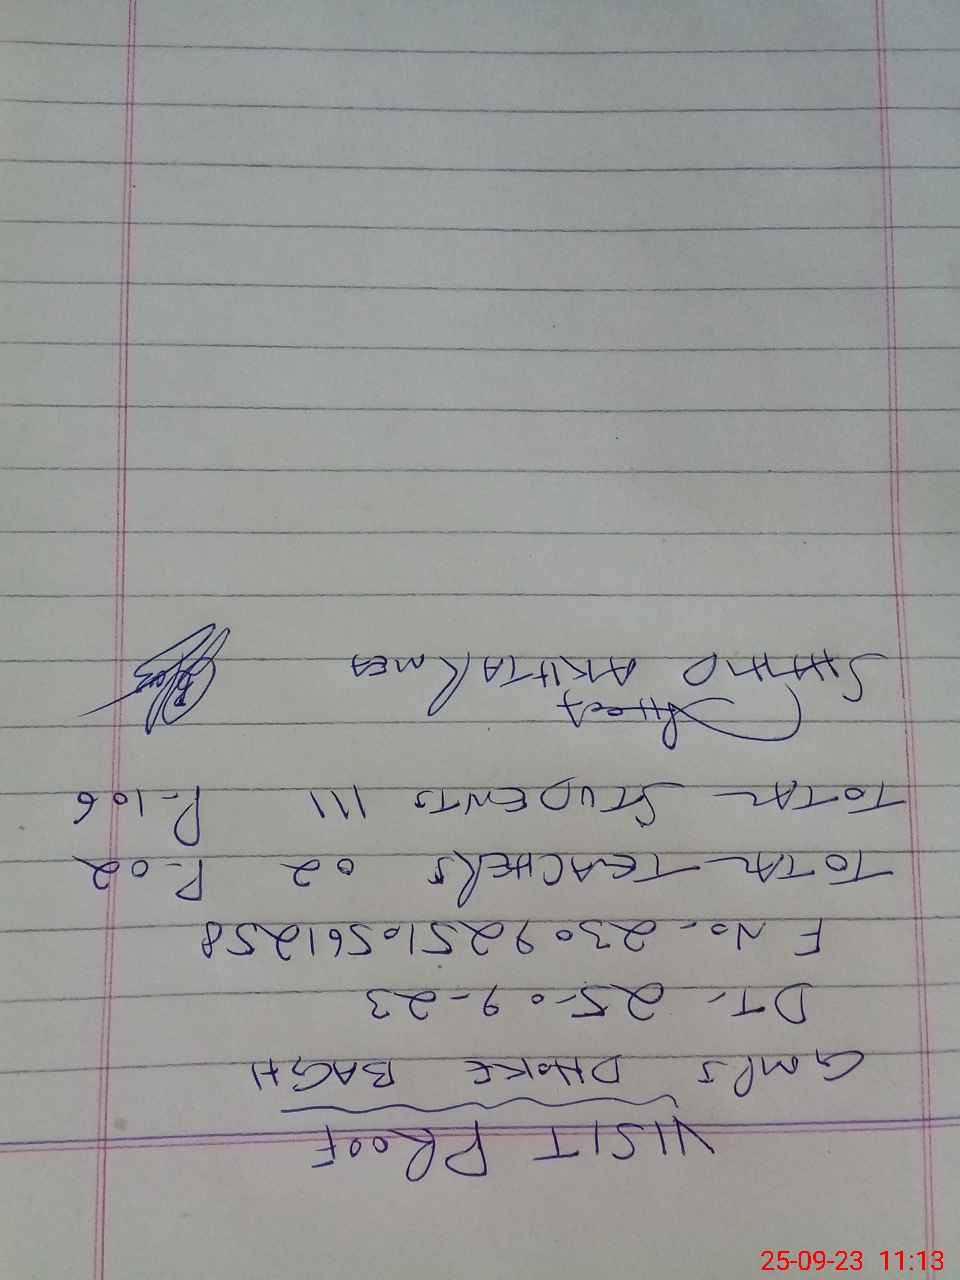 VISIT PROOF
GMPS DHOKE BAGH
DT- 25-09-23
F No- 23092510561258
TOTAL TEACHERS 02 P-02
TOTAL STUDENTS 111 P-106
SHAHID AKHTAR MEA
25-09-23 11:13